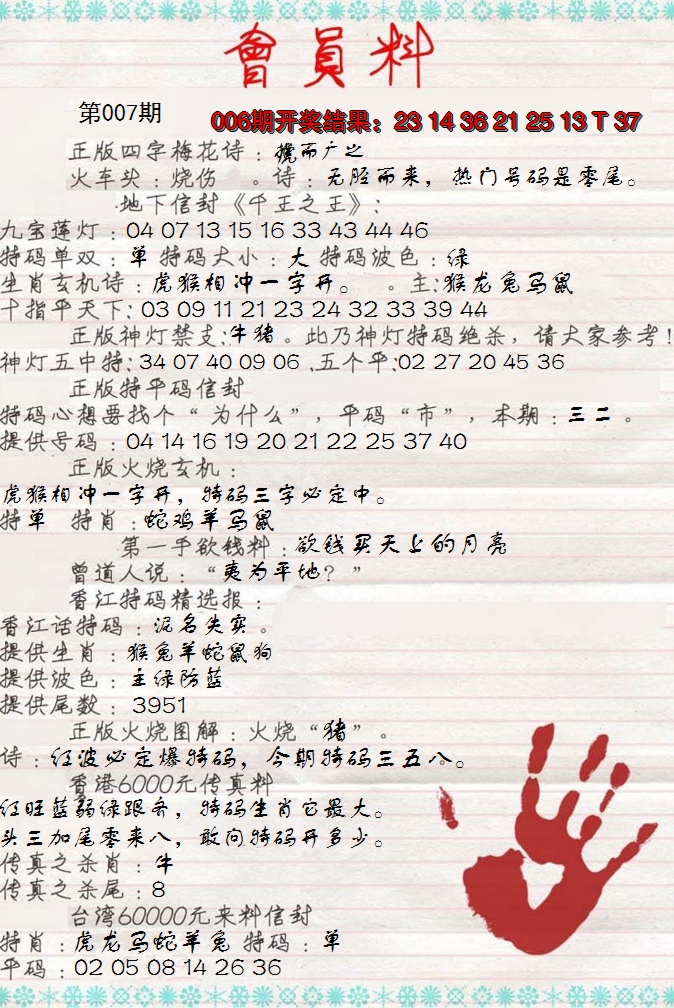 會員料
第007期
006期开奖结果：23 14 36 21 25 13 T 37
正版四字梅花诗：攬而广之
火车头：烧伤 。诗：无胫而来，热门号码是零尾。
地下信封《千王之王》：
九宝莲灯：04 07 13 15 16 33 43 44 46
特码单双：单 特码大小：大 特码波色：绿
生肖玄机诗：虎猴相冲一字开。 。主：猴龙兔马鼠
十指平天下：03 09 11 21 23 24 32 33 39 44
正版神灯禁支：牛猪。此乃神灯特码绝杀，请大家参考！
神灯五中特：34 07 40 09 06 .五个平：02 27 20 45 36
正版特平码信封
特码心想要找个“为什么”，平码“市”，本期：三二。
提供号码：04 14 16 19 20 21 22 25 37 40
正版火烧玄机：
虎猴相冲一字开，特码三字必定中。
特单 特肖：蛇鸡羊马鼠
第一手欲钱料：欲钱买天上的月亮
曾道人说：“夷为平地？”
香江特码精选报：
香江话特码：泥名失实。
提供生肖：猴兔羊蛇鼠狗
提供波色：主绿防蓝
提供尾数：3951
正版火烧图解：火烧“猪”。
诗：红波必定爆特码，今期特码三五八。
香港6000元传真料
红旺蓝弱绿跟齐，特码生肖它最大。
头三加尾零来八，敢问特码开多少。
传真之杀肖：牛
传真之杀尾：8
台湾60000元来料信封
特肖：虎龙马蛇羊兔 特码：单
平码：02 05 08 14 26 36